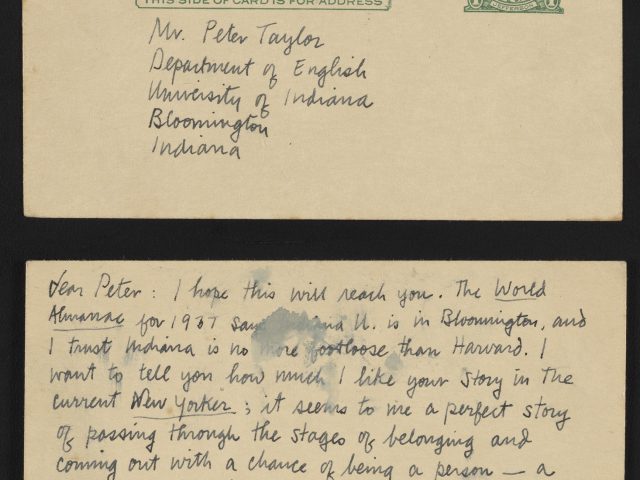 THIS SIDE OF CARD IS FOR ADDRESS
1 JEFFERSON 1
Mr. Peter Taylor
Department of English
University of Indiana
Bloomington
Indiana
Dear Peter: I hope this will reach you. The World
Almanac for 1937 U. is in Bloomington, and
I trust Indiana is no more footloose than Harvard. I
want to tell you how much I like your story in the
current New Yorker; it seems to me a perfect story
of passing through the stages of belonging and
coming out with a chance of being a person — a